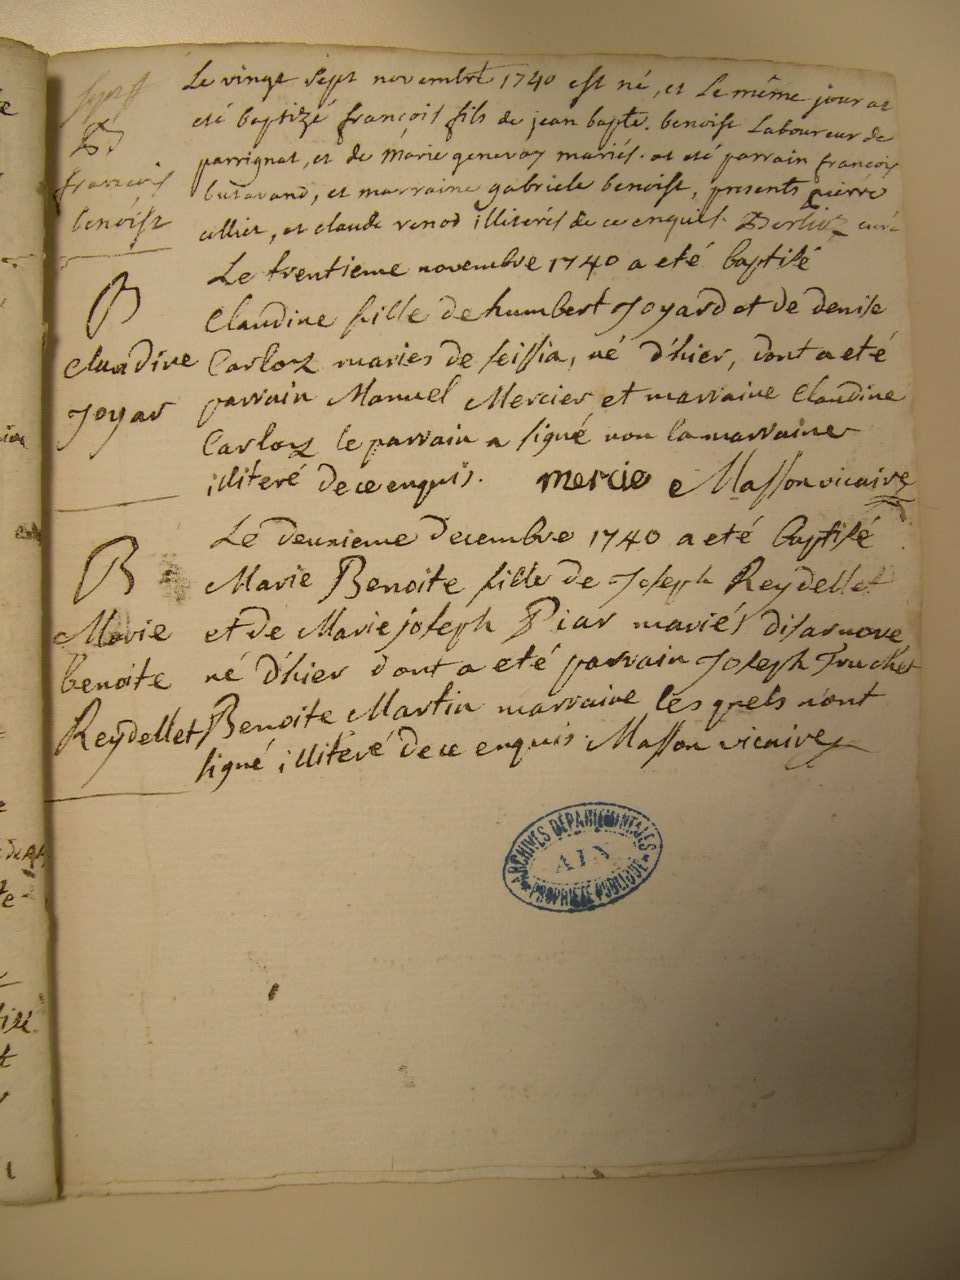 B.
françois
benoist
Le vingt sept novembre 1740 est né, et Le même jour at
eté baptizé françois fils de jean bapte. benoist Laboureur de
parrignat, et de Marie genevay mariés. at eté parrain françois
butavand, et marraine gabriele benoist, presents pierre
et claude renod illiterés de ce enquis. curé
B
Claudine
joyar
Le trentieme novembre 1740 a eté baptisé
Claudine fille de humbert Joyard et de denise
Carloz maries de seissia, né d'hier, dont a eté
parrain Manuel Mercier et marraine Claudine
Carloz le parrain a signé non la marraine
illiteré de ce enquis. mercie Masson vicaire
B
Marie
benoite
Reydellet
Le deuxieme decembre 1740 a eté baptisé
Marie Benoite fille de Joseph Reydellet
et de Marie joseph Piar mariés disarnore
né d'hier dont a eté parrain Joseph Truchet
Benoite Martin marraine les quels n'ont
signé illiteré de ce enquis. Masson vicaire
ARCHIVES DEPARTEMENTALES
AIN
PROPRIETE PUBLIQUE